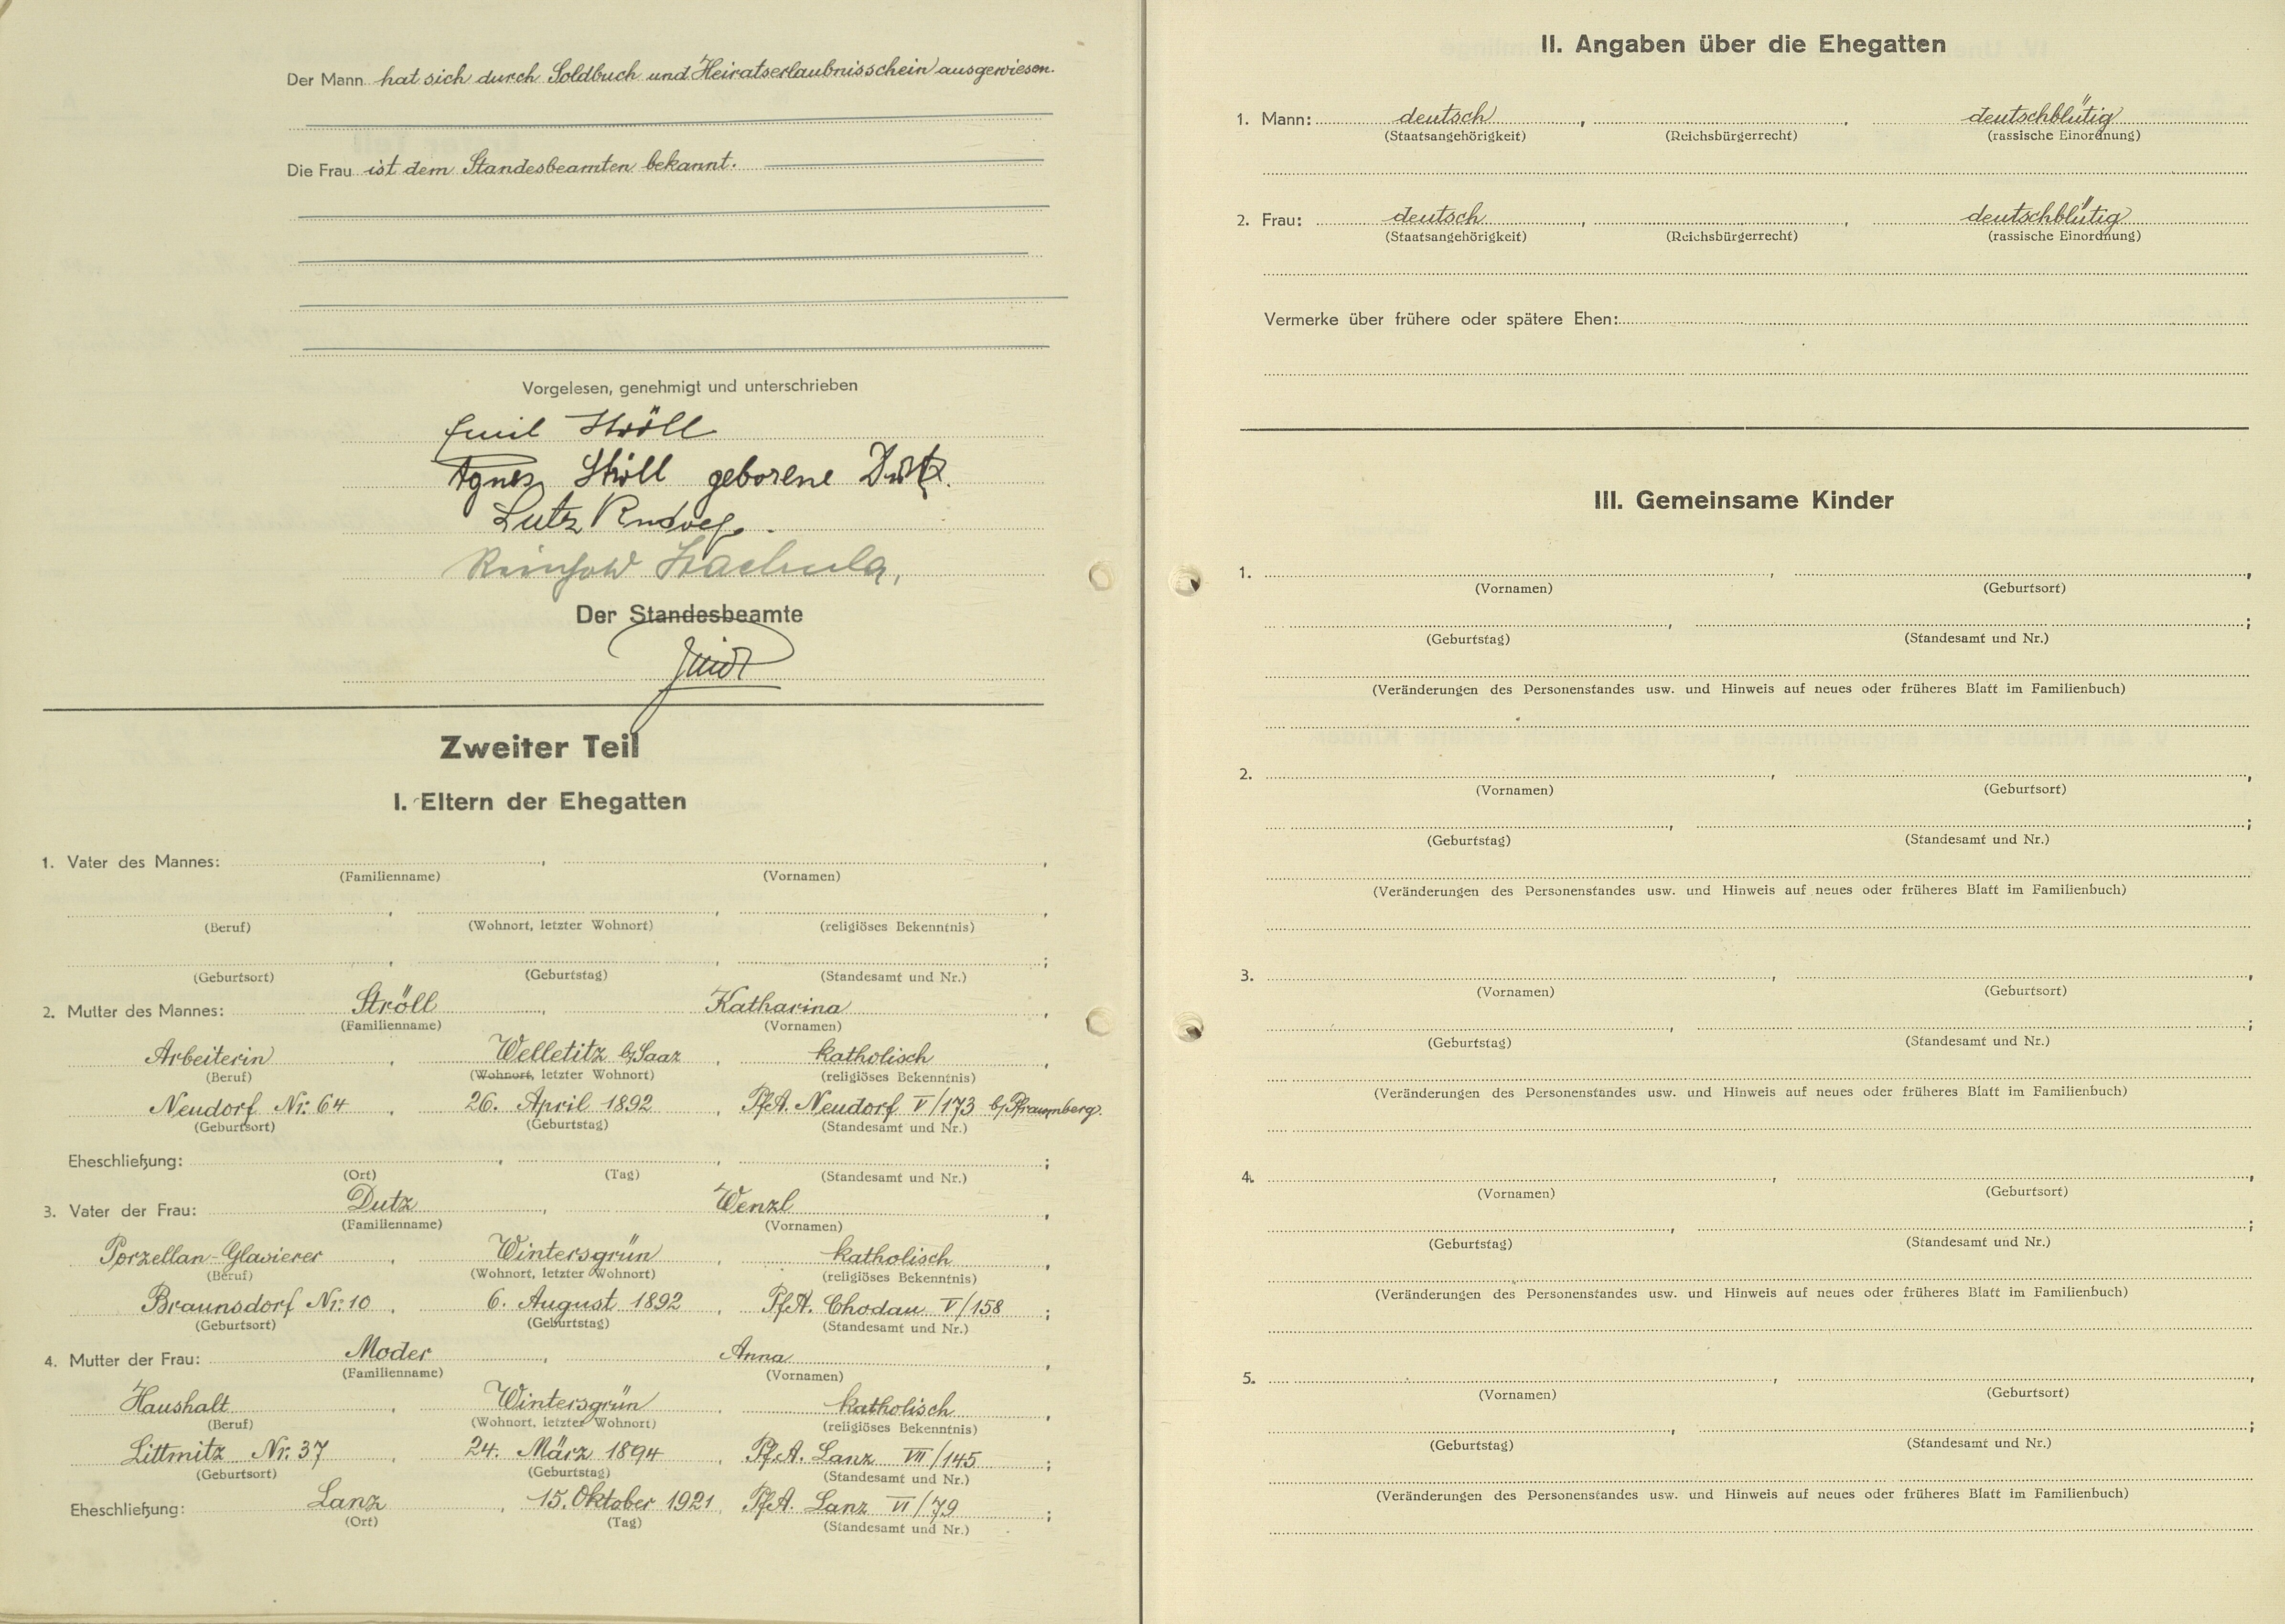 Der Mann hat sich durch Soldbuch und Heiratserlaubnisschein ausgewiesen.
Die Frau ist dem Standesbeamten bekannt.
Vorgelesen, genehmigt und unterschrieben
Emil Ströll
Agnes Ströll geborene Dutz.
Lutz
Der Standesbeamte
Zweiter Teil
I. Eltern der Ehegatten
1. Vater des Mannes: , ,
(Familienname) (Vornamen)
, , ,
(Beruf) (Wohnort, letzter Wohnort) (religiöses Bekenntnis)
, , ;
(Geburtsort) (Geburtstag) (Standesamt und Nr.)
2. Mutter des Mannes: Ströll , Katharina ,
(Familienname) (Vornamen)
Arbeiterin , Welletitz b/Saaz , katholisch ,
(Beruf) (Wohnort, letzter Wohnort) (religiöses Bekenntnis)
Neudorf Nr. 64 , 26. April 1892 , PfA. Neudorf V/173 b/Pfraumberg.
(Geburtsort) (Geburtstag) (Standesamt und Nr.)
Eheschließung: , , ;
(Ort) (Tag) (Standesamt und Nr.)
3. Vater der Frau: Dutz , Wenzl ,
(Familienname) (Vornamen)
Porzellan-Glasierer , Wintersgrün , katholisch ,
(Beruf) (Wohnort, letzter Wohnort) (religiöses Bekenntnis)
Braunsdorf Nr: 10 , 6. August 1892 , PfA. Chodau V/158 ;
(Geburtsort) (Geburtstag) (Standesamt und Nr.)
4. Mutter der Frau: Moder , Anna ,
(Familienname) (Vornamen)
Haushalt , Wintersgrün , katholisch ,
(Beruf) (Wohnort, letzter Wohnort) (religiöses Bekenntnis)
Littmitz Nr. 37 , 24. März 1894 , PfA. Lanz VII/145 ;
(Geburtsort) (Geburtstag) (Standesamt und Nr.)
Eheschließung: Lanz , 15. Oktober 1921 , PfA. Lanz VI/79 ;
(Ort) (Tag) (Standesamt und Nr.)
II. Angaben über die Ehegatten
1. Mann: deutsch , , deutschblütig
(Staatsangehörigkeit) (Reichsbürgerrecht) (rassische Einordnung)
2. Frau: deutsch , , deutschblütig
(Staatsangehörigkeit) (Reichsbürgerrecht) (rassische Einordnung)
Vermerke über frühere oder spätere Ehen:
III. Gemeinsame Kinder
1. , ,
(Vornamen) (Geburtsort)
, ;
(Geburtstag) (Standesamt und Nr.)
(Veränderungen des Personenstandes usw. und Hinweis auf neues oder früheres Blatt im Familienbuch)
2. , ,
(Vornamen) (Geburtsort)
, ;
(Geburtstag) (Standesamt und Nr.)
(Veränderungen des Personenstandes usw. und Hinweis auf neues oder früheres Blatt im Familienbuch)
3. , ,
(Vornamen) (Geburtsort)
, ;
(Geburtstag) (Standesamt und Nr.)
(Veränderungen des Personenstandes usw. und Hinweis auf neues oder früheres Blatt im Familienbuch)
4. , ,
(Vornamen) (Geburtsort)
, ;
(Geburtstag) (Standesamt und Nr.)
(Veränderungen des Personenstandes usw. und Hinweis auf neues oder früheres Blatt im Familienbuch)
5. , ,
(Vornamen) (Geburtsort)
, ;
(Geburtstag) (Standesamt und Nr.)
(Veränderungen des Personenstandes usw. und Hinweis auf neues oder früheres Blatt im Familienbuch)